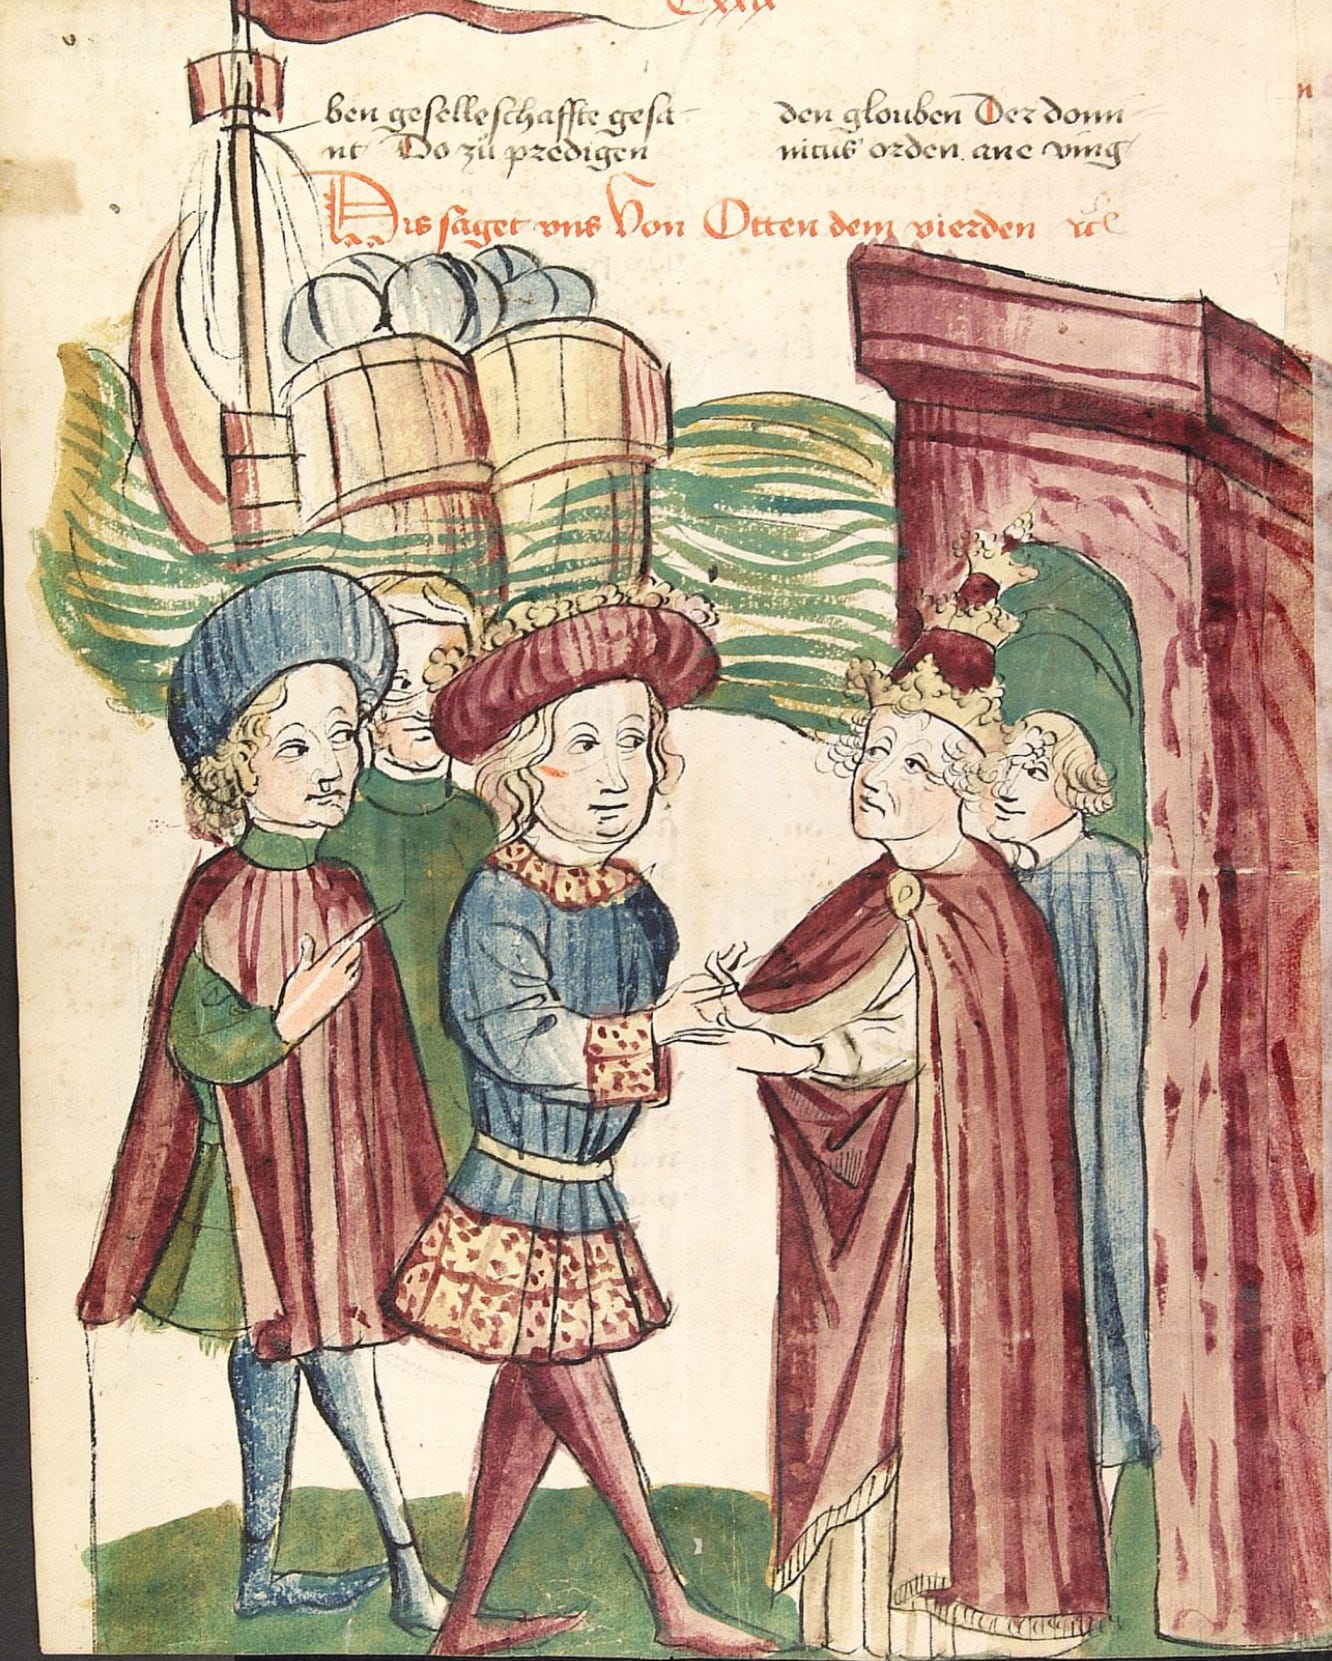 Cxxii
ben geselleschaffte gesa
nt Do zů predigen
den glouben Der domi
nicus orden ane ving
Dis saget vns Von Otten dem vierden
n